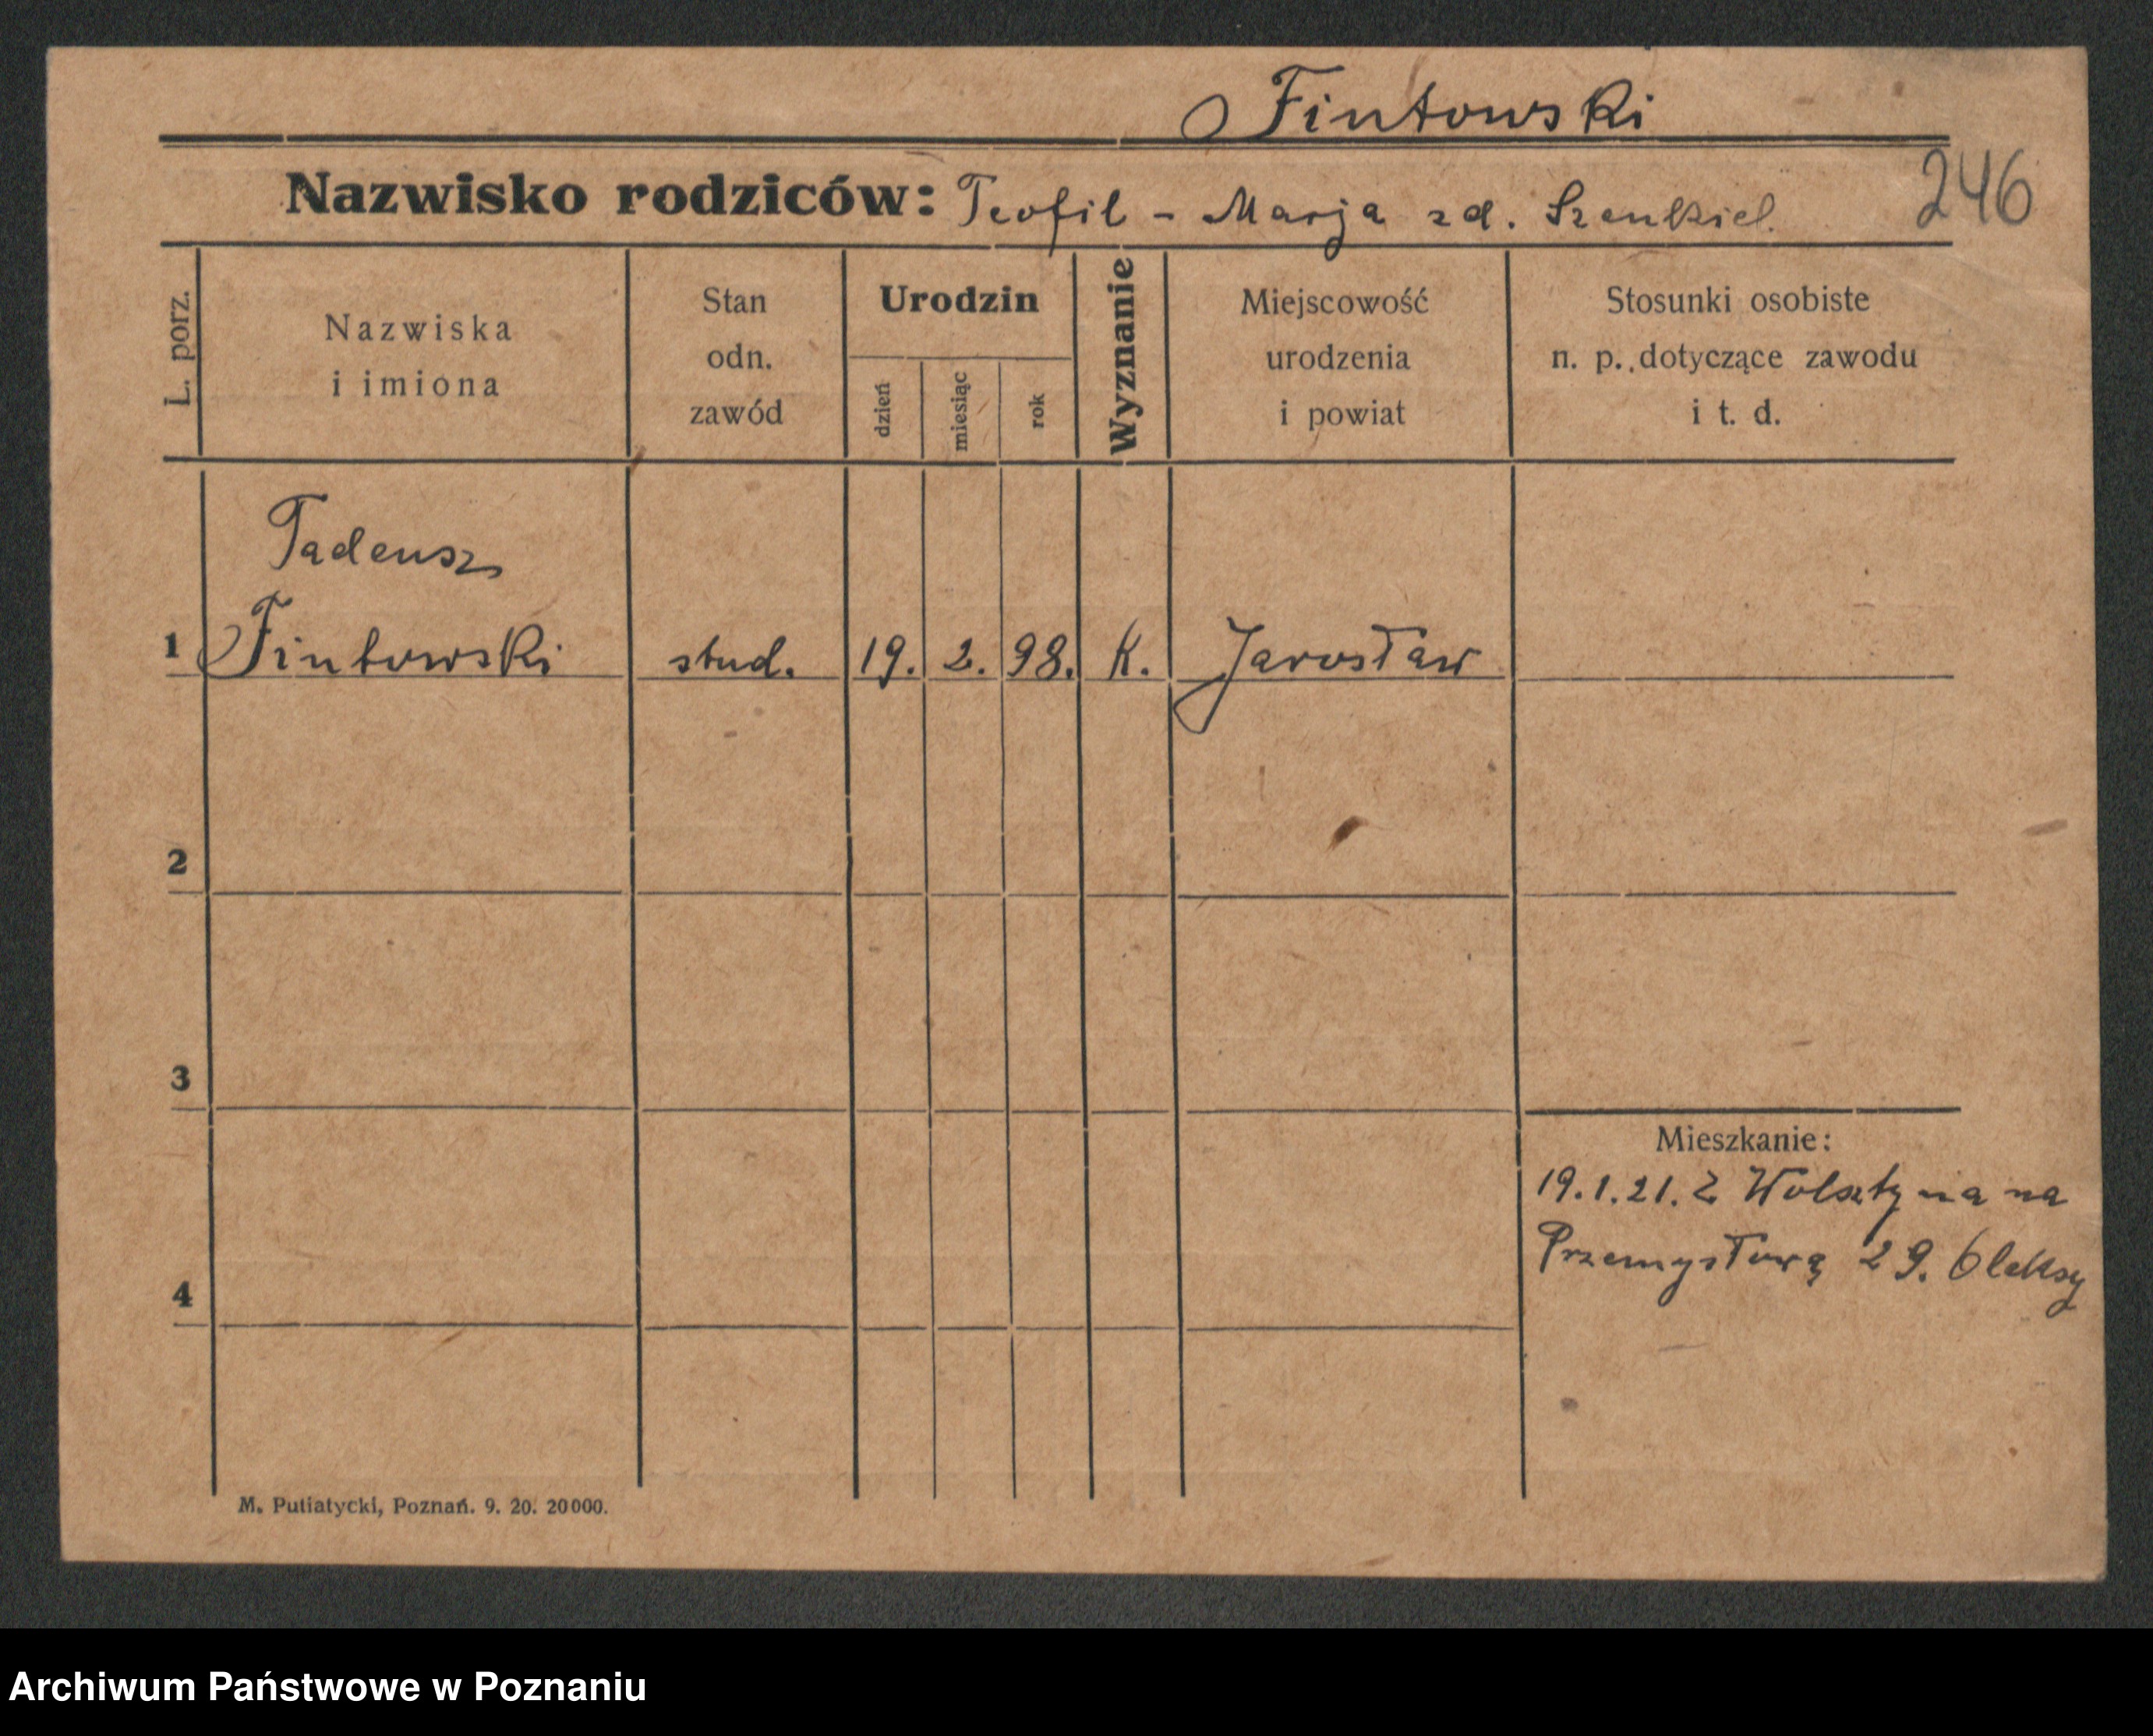 Fintowski
246
Nazwisko rodziców: Teofil - Marja zd. Szenkiel.
L. porz.
Nazwiska
i imiona
Stan
odn.
zawód
Urodzin
dzień
miesiąc
rok
Wyznanie
Miejscowość
urodzenia
i powiat
Stosunki osobiste
n. p., dotyczące zawodu
i t. d.
Tadeusz
1 Fintowski stud. 19. 2. 98. K. Jarosław
2
3
Mieszkanie:
19.1.21. Z Wolsztyna na
Przemysłową 29. Oleksy
4
M. Putiatycki, Poznań. 9. 20. 20000.
Archiwum Państwowe w Poznaniu